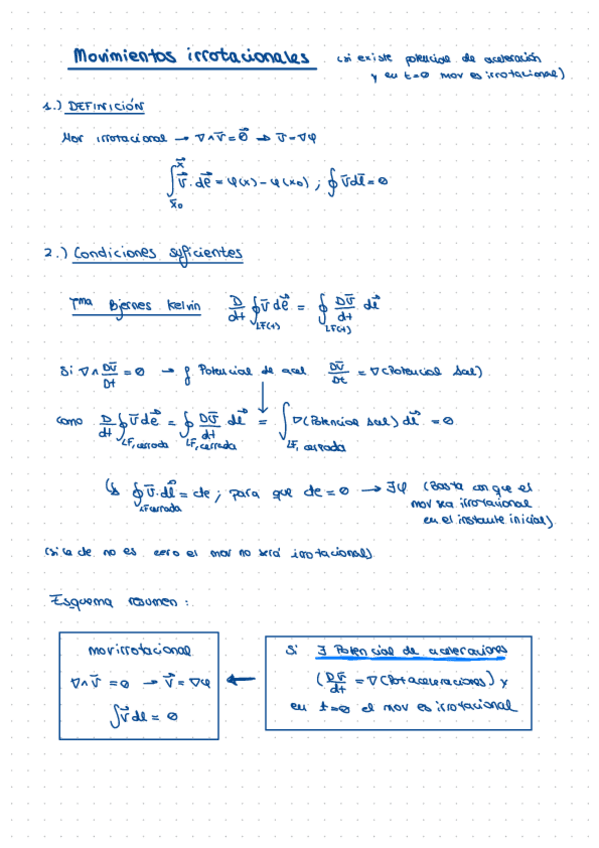 Movimientos irrotacionales (si existe potencial de aceleración
y en t=0 mov es irrotacional)
1.) DEFINICIÓN
Mov irrotacional → ∇∧v̄ = 0⃗ ⇒ v̄ = ∇φ
∫_{x̄₀}^{x⃗} v⃗·dl⃗ = φ(x) - φ(x₀) ; ∮ v̄ dl̄ = 0
2.) Condiciones suficientes
Tma Bjernes Kelvin D/dt ∮_{LF(t)} v̄ dl⃗ = ∮_{LF(t)} Dv̄/dt dl⃗
Si ∇∧ Dv̄/Dt = 0 → ∃ Potencial de acel Dv̄/Dt = ∇(Potencial sal)
como D/dt ∮_{LF, cerrada} v̄ dl⃗ = ∮_{LF, cerrada} Dv̄/dt dl⃗ = ∫_{LF, cerrada} ∇(Potencial sal) dl⃗ = 0
↳ ∮_{LF cerrada} v̄·dl⃗ = cte ; para que cte = 0 → ∃φ (Basta con que el
mov sea irrotacional
en el instante inicial)
(si la cte no es cero el mov no será irrotacional)
Esquema resumen :
mov irrotacional
∇∧v̄ = 0 → v⃗ = ∇φ
∫ v⃗ dl = 0
←
Si ∃ Potencial de aceleraciones
(Dv̄/dt = ∇(Pot aceleraciones) y
en t=0 el mov es irrotacional